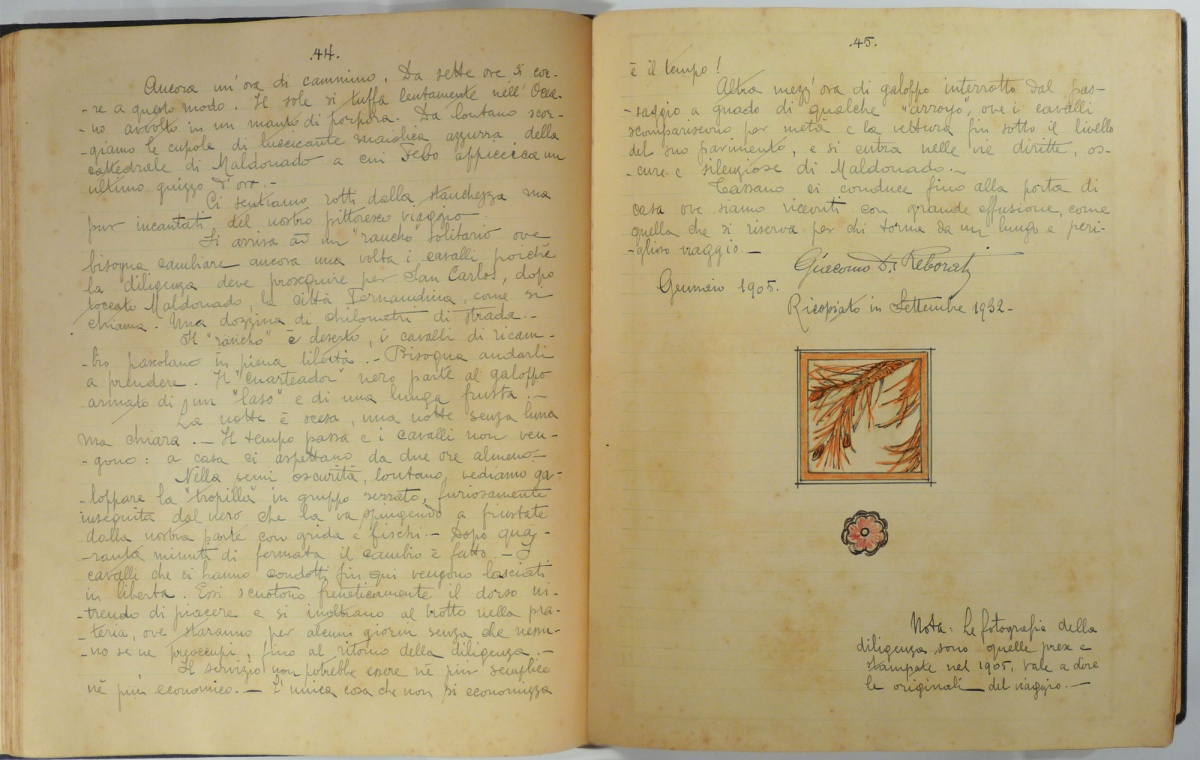 .44.
Ancora un'ora di cammino. Da sette ore si cor-
-re a questo modo. Il sole si tuffa lentamente nell'Ocea-
-no avvolto in un manto di porpora. Da lontano scor-
-giamo le cupole di luccicante maiolica azzurra della
cattedrale di Maldonado a cui Febo appiccica un
ultimo guizzo d'oro.-
Ci sentiamo rotti dalla stanchezza ma
pur incantati del nostro pittoresco viaggio.
Si arriva ad un "rancho" solitario ove
bisogna cambiare ancora una volta i cavalli poichè
la diligenza deve proseguire per San Carlos, dopo
toccato Maldonado, la città Fernandina, come si
chiama. Una dozzina di chilometri di strada.-
Il "rancho" è deserto, i cavalli di ricam-
-bio pascolano in piena libertà.- Bisogna andarli
a prendere. Il "cuarteador" nero parte al galoppo
armato di un "laso" e di una lunga frusta.-
La notte è scesa, una notte senza luna
ma chiara.- Il tempo passa e i cavalli non ven-
-gono: a casa ci aspettano da due ore almeno-
Nella semi oscurità, lontano, vediamo ga-
-loppare la "tropilla" in gruppo serrato, furiosamente
inseguita dal nero che la va spingendo a frustate
dalla nostra parte con grida e fischi.- Dopo qua-
-ranta minuti di fermata il cambio è fatto.- I
cavalli che ci hanno condotti fin qui vengono lasciati
in libertà. Essi scuotono freneticamente il dorso ni-
-trendo di piacere e si inoltrano al trotto nella pra-
-teria, ove staranno per alcuni giorni senza che nessu-
-no se ne preoccupi, fino al ritorno della diligenza.-
Il servizio non potrebbe essere nè più semplice
nè più economico.- L'unica cosa che non si economizza
.45.
è il tempo!
Altra mezz'ora di galoppo interrotto dal pas-
-saggio a guado di qualche "arroyo", ove i cavalli
scompariscono per metà e la vettura fin sotto il livello
del suo pavimento, e si entra nelle vie diritte, os-
-cure e silenziose di Maldonado.-
Cassano ci conduce fino alla porta di
casa ove siamo ricevuti con grande effusione, come
quella che si riserva per chi torna da un lungo e peri-
-glioso viaggio-
Giacomo D. Reborati
Gennaio 1905.
Ricopiato in Settembre 1932-
Nota: Le fotografie della
diligenza sono quelle prese e
stampate nel 1905, vale a dire
le originali del viaggio.-